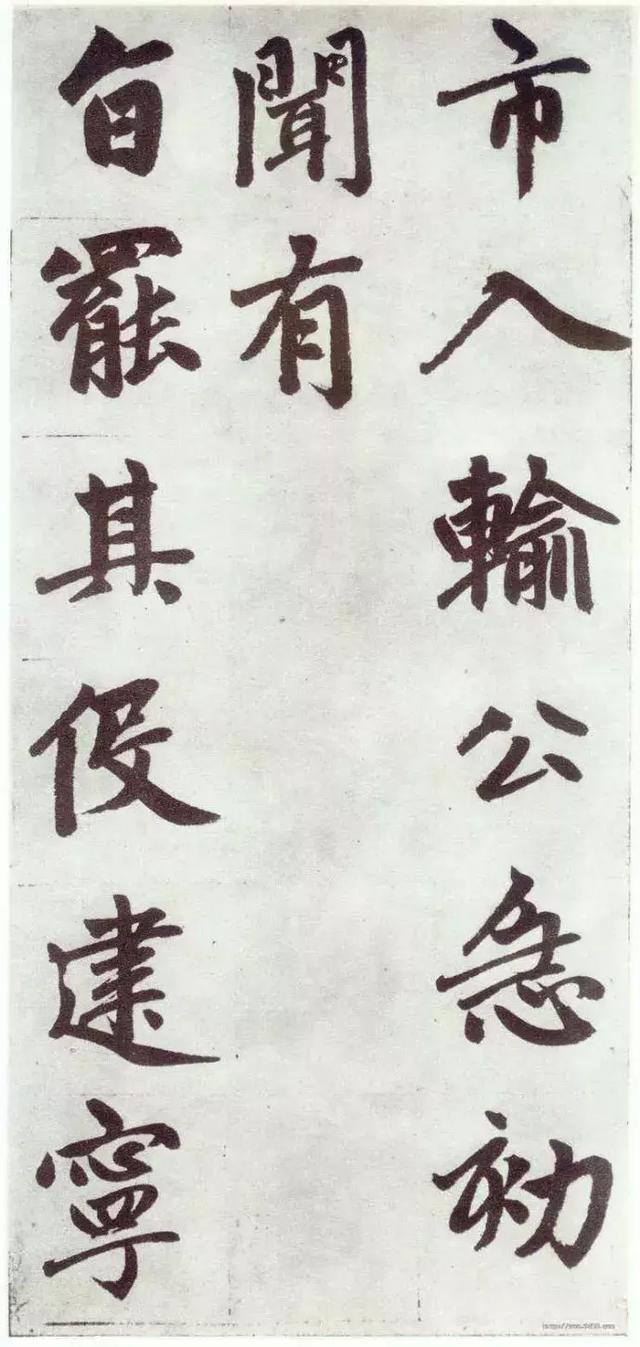 市入輸公急効
聞有
旨罷其役建寧